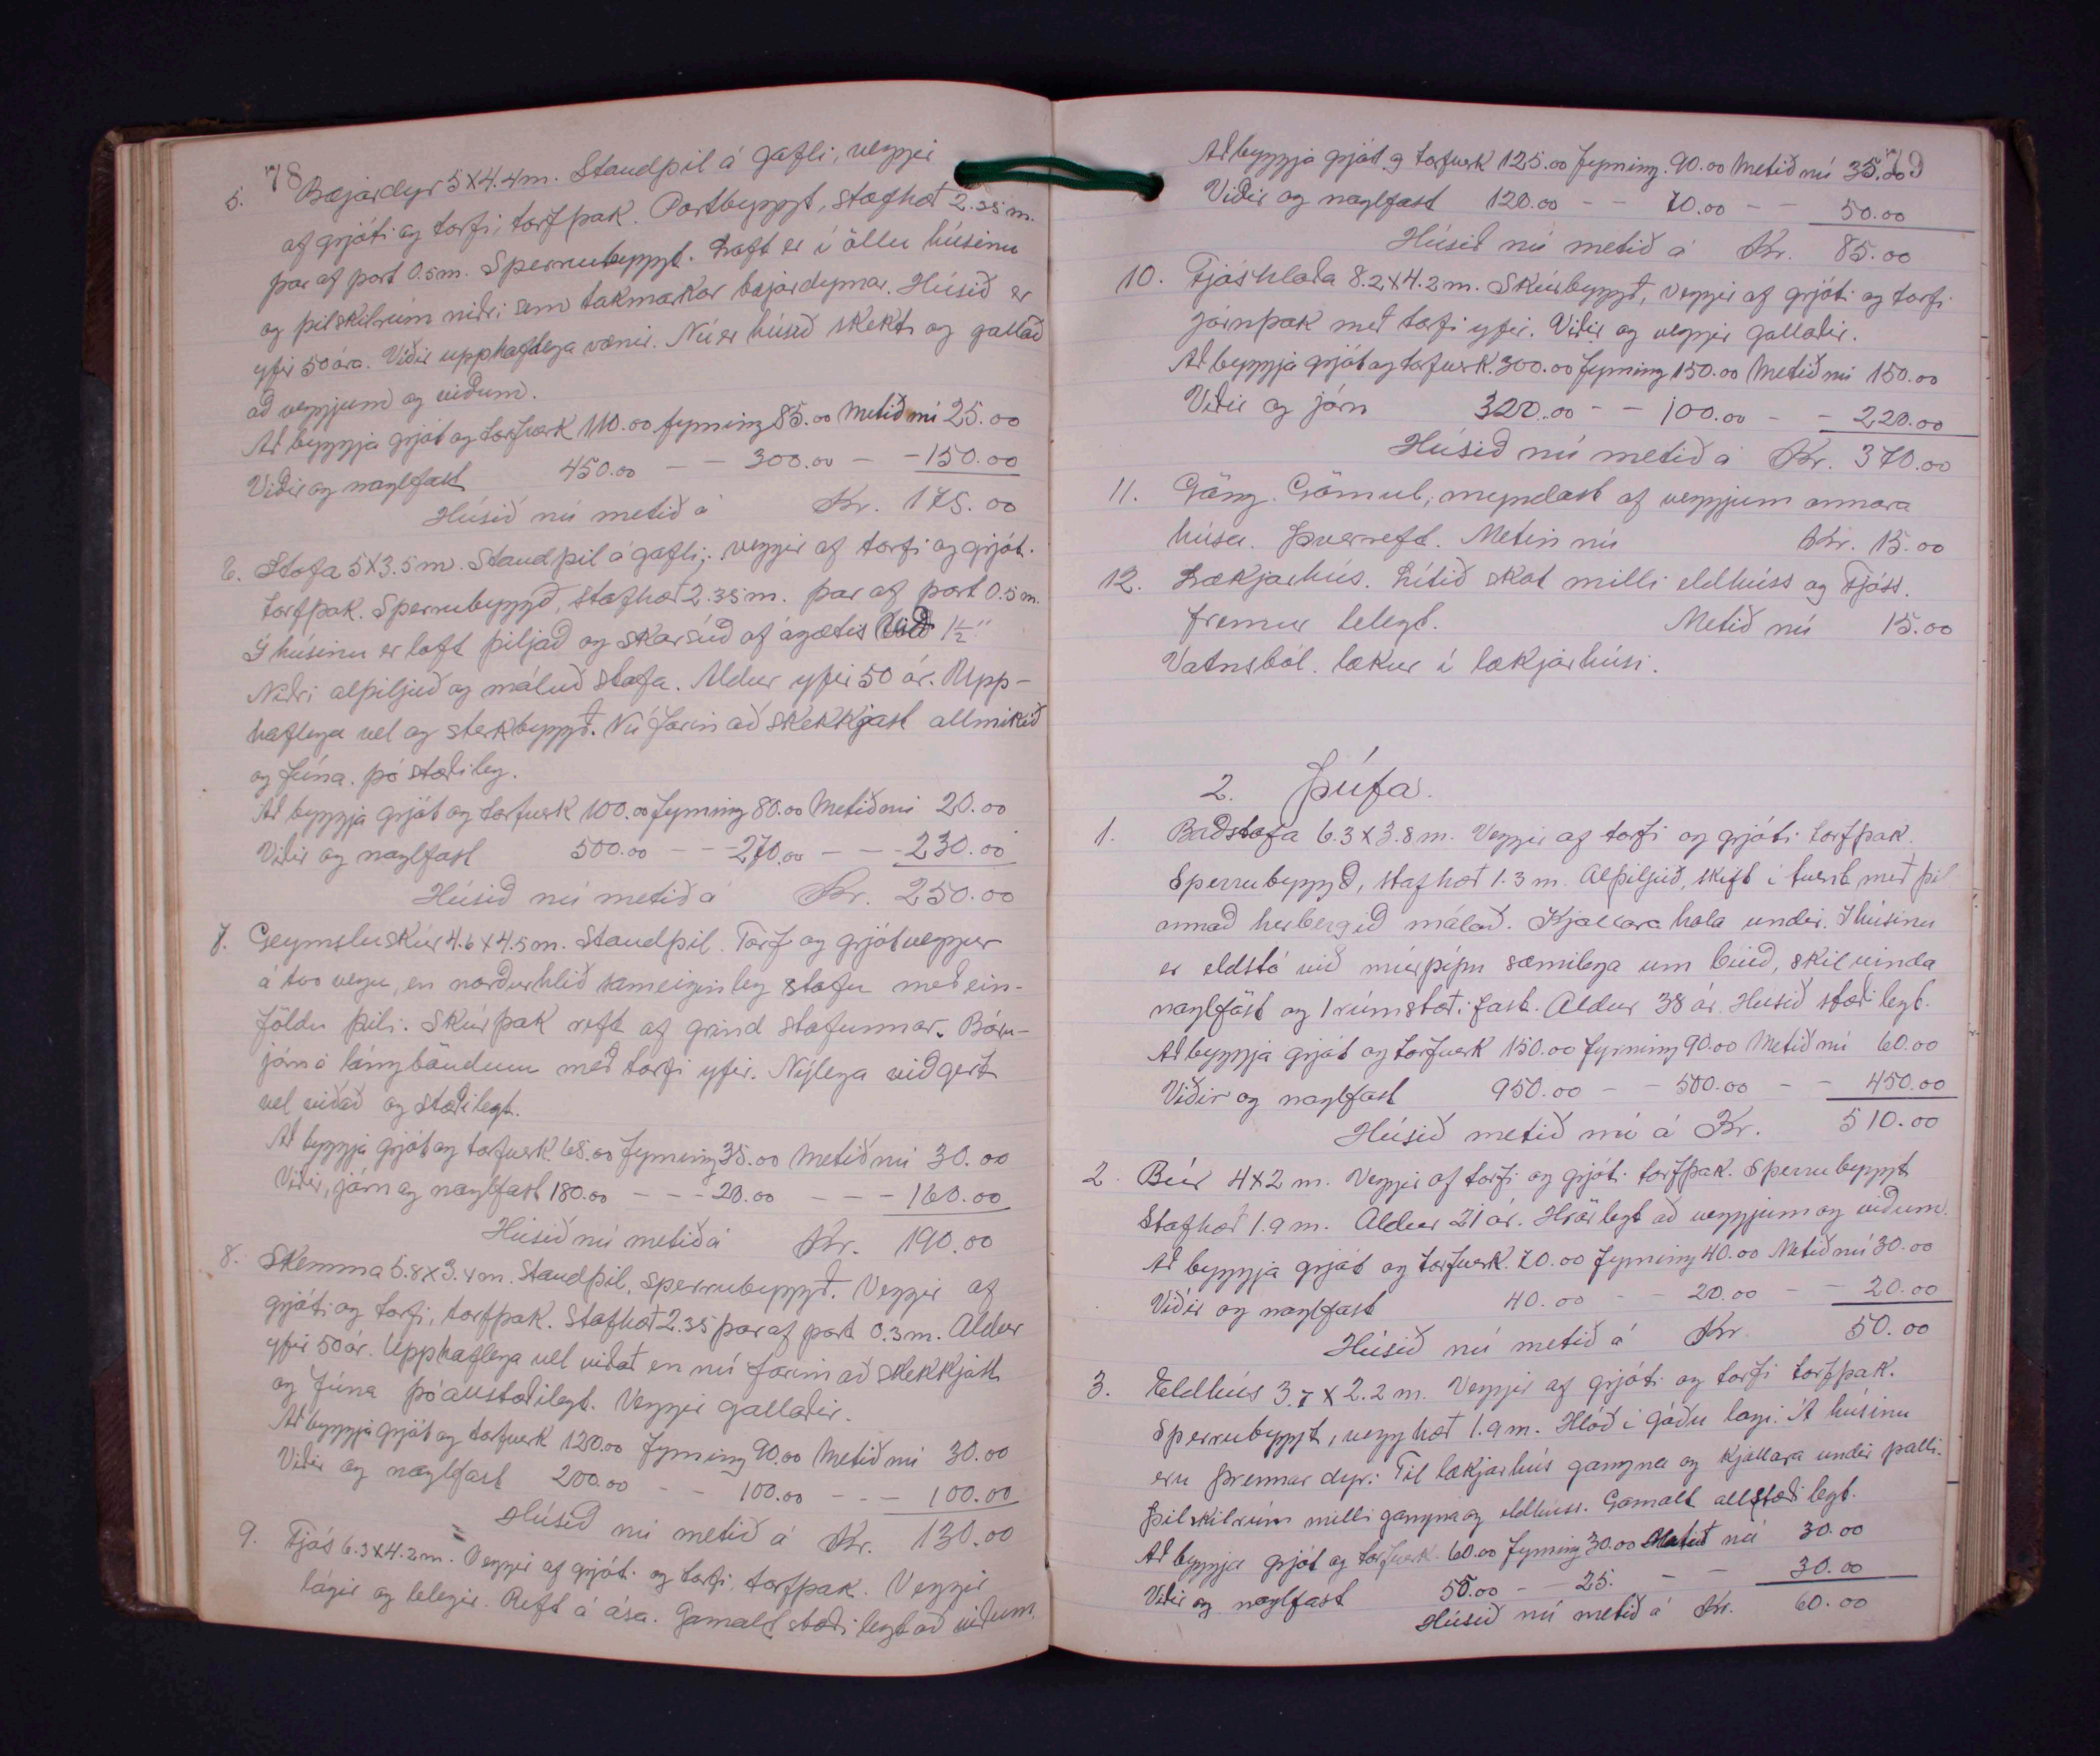 78
5. Bæjardyr 5x4.4m. Standþil á gafli, veggir
af grjóti og torfi, torfþak. Portbyggt, stafhæð 2.35 m.
þar af port 0.5m. Sperrubyggt. Loft er í öllu húsinu
og þilskilrúm niðri sem takmarkar bæjardyrnar. Húsið er
yfir 50 ára. Viðir upphaflega vænir. Nú er húsið skekt og gallað
að veggjum og viðum.
Að byggja grjót og torfverk 110.00 fyrning 85.00 Metið nú 25.00
Viðir og naglfast 450.00 - - 300.00 - - 150.00
Húsið nú metið á Kr. 175.00
6. Stofa 5x3.5m. Standþil á gafli; veggir af torfi og grjót.
torfþak. Sperrubyggð, stafhæð 2.35m. þar af port 0.5m.
Í húsinu er loft þiljað og skarsúð af ágætis við 1 1/2"
Niðri alþiljuð og máluð stofa. Aldur yfir 50 ár. Upp-
haflega vel og sterkbyggð. Nú farin að skekkjast allmikið
og fúna, þó stæðileg.
Að byggja grjót og torfverk 100.00 fyrning 80.00 Metið nú 20.00
Viðir og naglfast 500.00 - - - 270.00 - - - 230.00
Húsið nú metið á Kr. 250.00
7. Geymsluskúr 4.6x4.5m. Standþil. Torf og grjótveggur
á tvo vegu, en norðurhlið sameiginleg stofu með ein-
földu þili. Skúrþak reft af grind stofunnar. Báru-
járn á langböndum með torfi yfir. Nýlega viðgert
vel viðað og stæðilegt.
Að byggja grjót og torfverk. 65.00 fyrning 35.00 Metið nú 30.00
Viðir, járn og naglfast 180.00 - - - 20.00 - - - 160.00
Húsið nú metið á Kr. 190.00
8. Skemma 5.8x3.4m. Standþil, sperrubyggð. Veggir af
grjóti og torfi, torfþak. Stafhæð 2.35 þar af port 0.3m. Aldur
yfir 50 ár. Upphaflega vel viðað en nú farin að skekkjast
og fúna þó allstæðilegt. Veggir gallaðir.
Að byggja grjót og torfverk 120.00 fyrning 90.00 Metið nú 30.00
Viðir og naglfast 200.00 - - 100.00 - - - 100.00
Húsið nú metið á Kr. 130.00
9. Fjós 6.3x4.2m. Veggir af grjóti og torfi, torfþak. Veggir
lágir og lélegir. Reft á ása. Gamalt, stæðilegt að viðum.
79
Að byggja grjót og torfverk 125.00 fyrning. 90.00 Metið nú 35.00
Viðir og naglfast 120.00 - - 70.00 - - 50.00
Húsið nú metið á Kr. 85.00
10. Fjóshlaða 8.2x4.2m. Skúrbyggð, veggir af grjóti og torfi
járnþak með torfi yfir. Viðir og veggir gallaðir.
Að byggja grjót og torfverk. 300.00 fyrning 150.00 Metið nú 150.00
Viðir og járn 320.00 - - 100.00 - - 220.00
Húsið nú metið á Kr. 370.00
11. Göng. Gömul, myndast af veggjum annara
húsa. Þverreft. Metin nú Kr. 15.00
12. Lækjarhús. Lítið skot milli eldhúss og Fjóss.
fremur lélegt. Metið nú 15.00
Vatnsból. lækur í lækjarhúsi.
2. Þúfa.
1. Baðstofa 6.3x3.8m. Veggir af torfi og grjóti torfþak.
Sperrubyggð, stafhæð 1.3 m. Alþiljuð, skift í tvent með þil
annað herbergið málað. Kjallara hola undir. Í húsinu
er eldstó við múrpípu sæmilega um búið, skilvinda
naglföst og 1 rúmstæði fast. Aldur 38 ár. Húsið stæðilegt.
Að byggja grjót og torfverk 150.00 fyrning 90.00 Metið nú 60.00
Viðir og naglfast 950.00 - - 500.00 - - 450.00
Húsið metið nú á Kr. 510.00
2. Búr 4x2 m. Veggir af torfi og grjóti torfþak. Sperrubyggt
Stafhæð 1.9 m. Aldur 21 ár. Hrörlegt að veggjum og viðum.
Að byggja grjót og torfverk. 70.00 fyrning 40.00 Metið nú 30.00
Viðir og naglfast 40.00 - - 20.00 - - 20.00
Húsið nú metið á Kr. 50.00
3. Eldhús 3.7 x 2.2 m. Veggir af grjóti og torfi torfþak.
Sperrubyggt, vegghæð 1.9 m. Hlóð í góðu lagi. Á húsinu
eru þrennar dyr: Til lækjarhús gangna og kjallara undir palli.
Þilskilrúm milli gangna og eldhúss. Gamalt allstæðilegt.
Að byggja grjót og torfverk. 60.00 fyrning 30.00 Metið nú 30.00
Viðir og naglfast 55.00 - - 25. - - 30.00
Húsið nú metið á Kr. 60.00